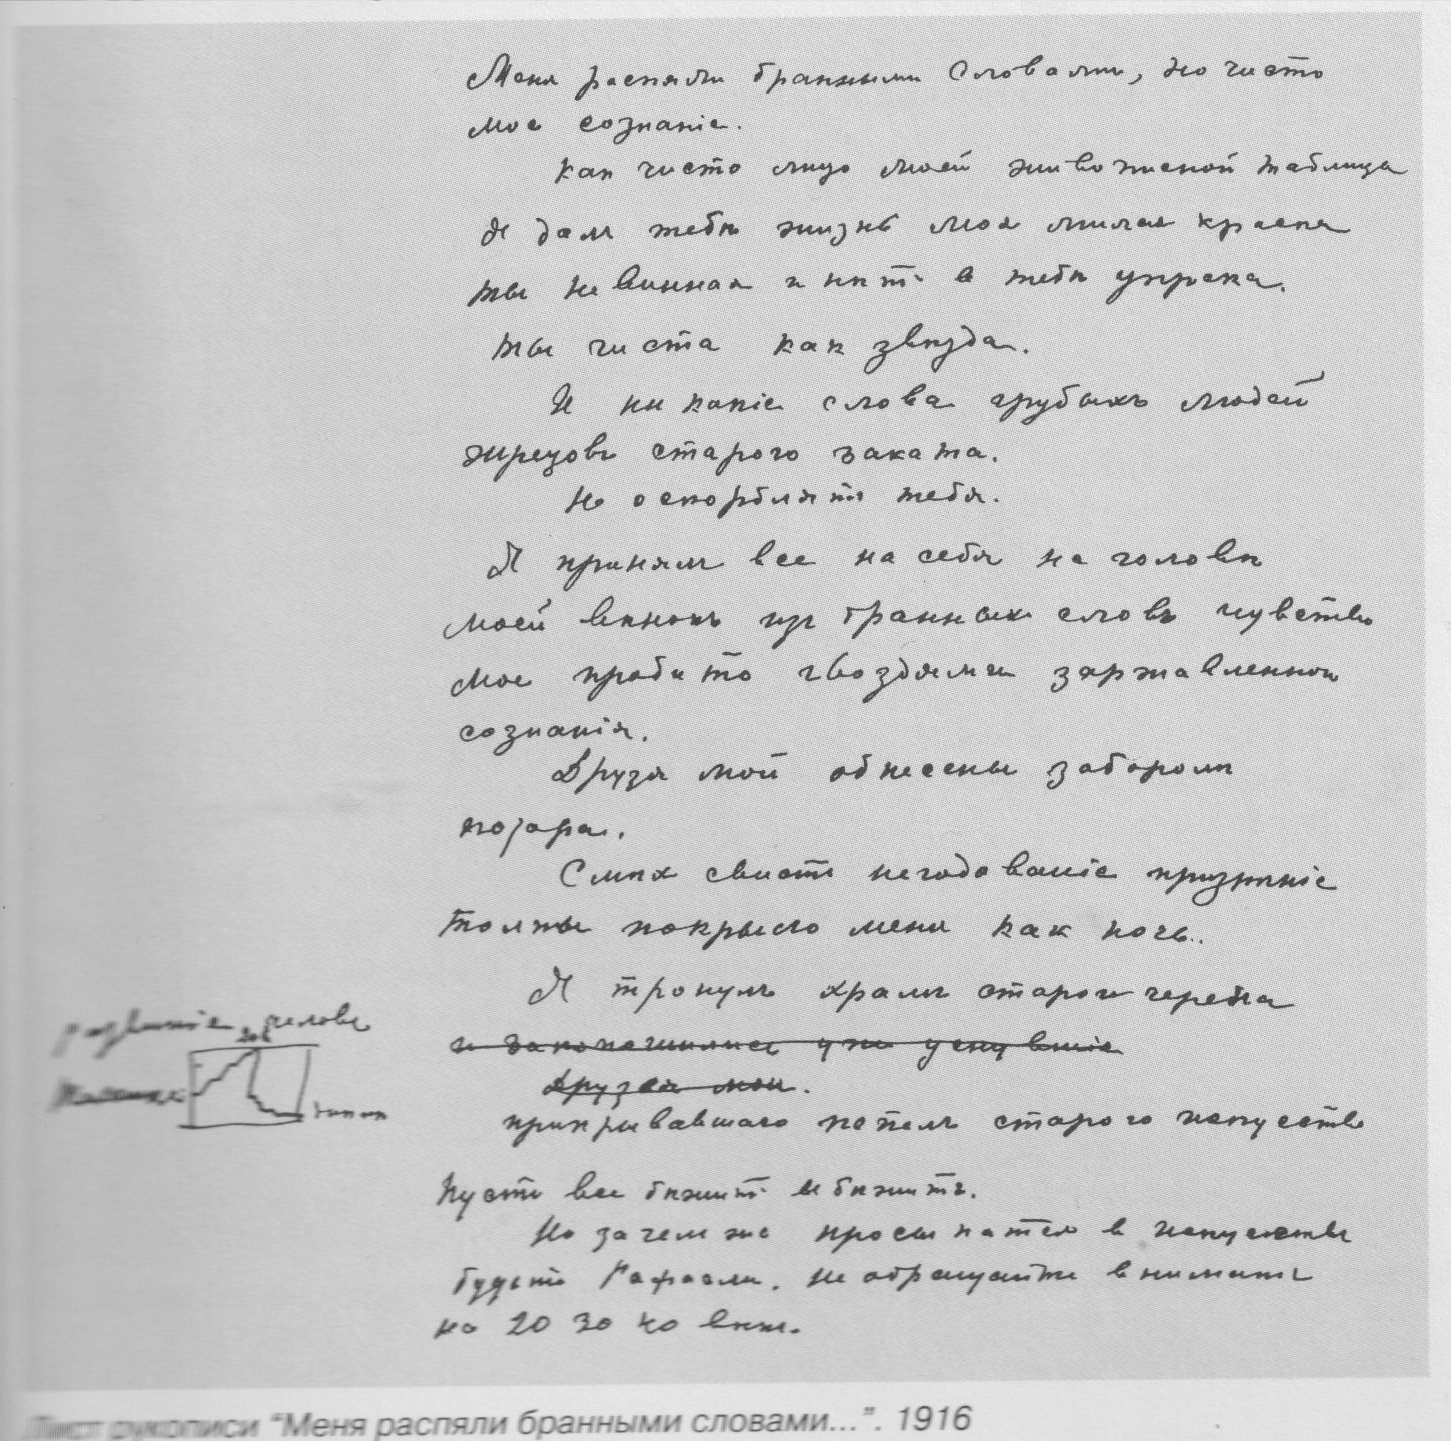 Меня распяли бранными словами, но чисто
мое сознание.
Как чисто лицо моей живописной таблица
Я дам тебѣ жизнь моя милая краска
ты невинная и нѣтъ в тебѣ упрека.
ты чиста как звѣзда.
И никакіе слова грубыхъ людей
жрецовъ старого заката.
Не оскорблятъ тебя.
Я принялъ все на себя на головѣ
моей вѣнокъ изъ бранных словъ чувство
мое пробито гвоздями заржавленного
сознанія.
Друзя мои обнесены заборомъ
позора.
Смѣх свистъ негодованіе призрѣніе
толпы покрыло меня как ночь.
Я тронулъ храмъ старого черепа
и закопошились уже уснувшіе
друзья мои.
прикрывавшаго пепелъ старого искуства
Пусть все бѣжитъ и бѣжитъ.
Но зачем же просыпатся в искуствѣ
будить Рафаэля. Не обращайте вниманія
на 20 30 40 вѣкъ.
развитіе человѣ
20 в
Лист рукописи "Меня распяли бранными словами...". 1916